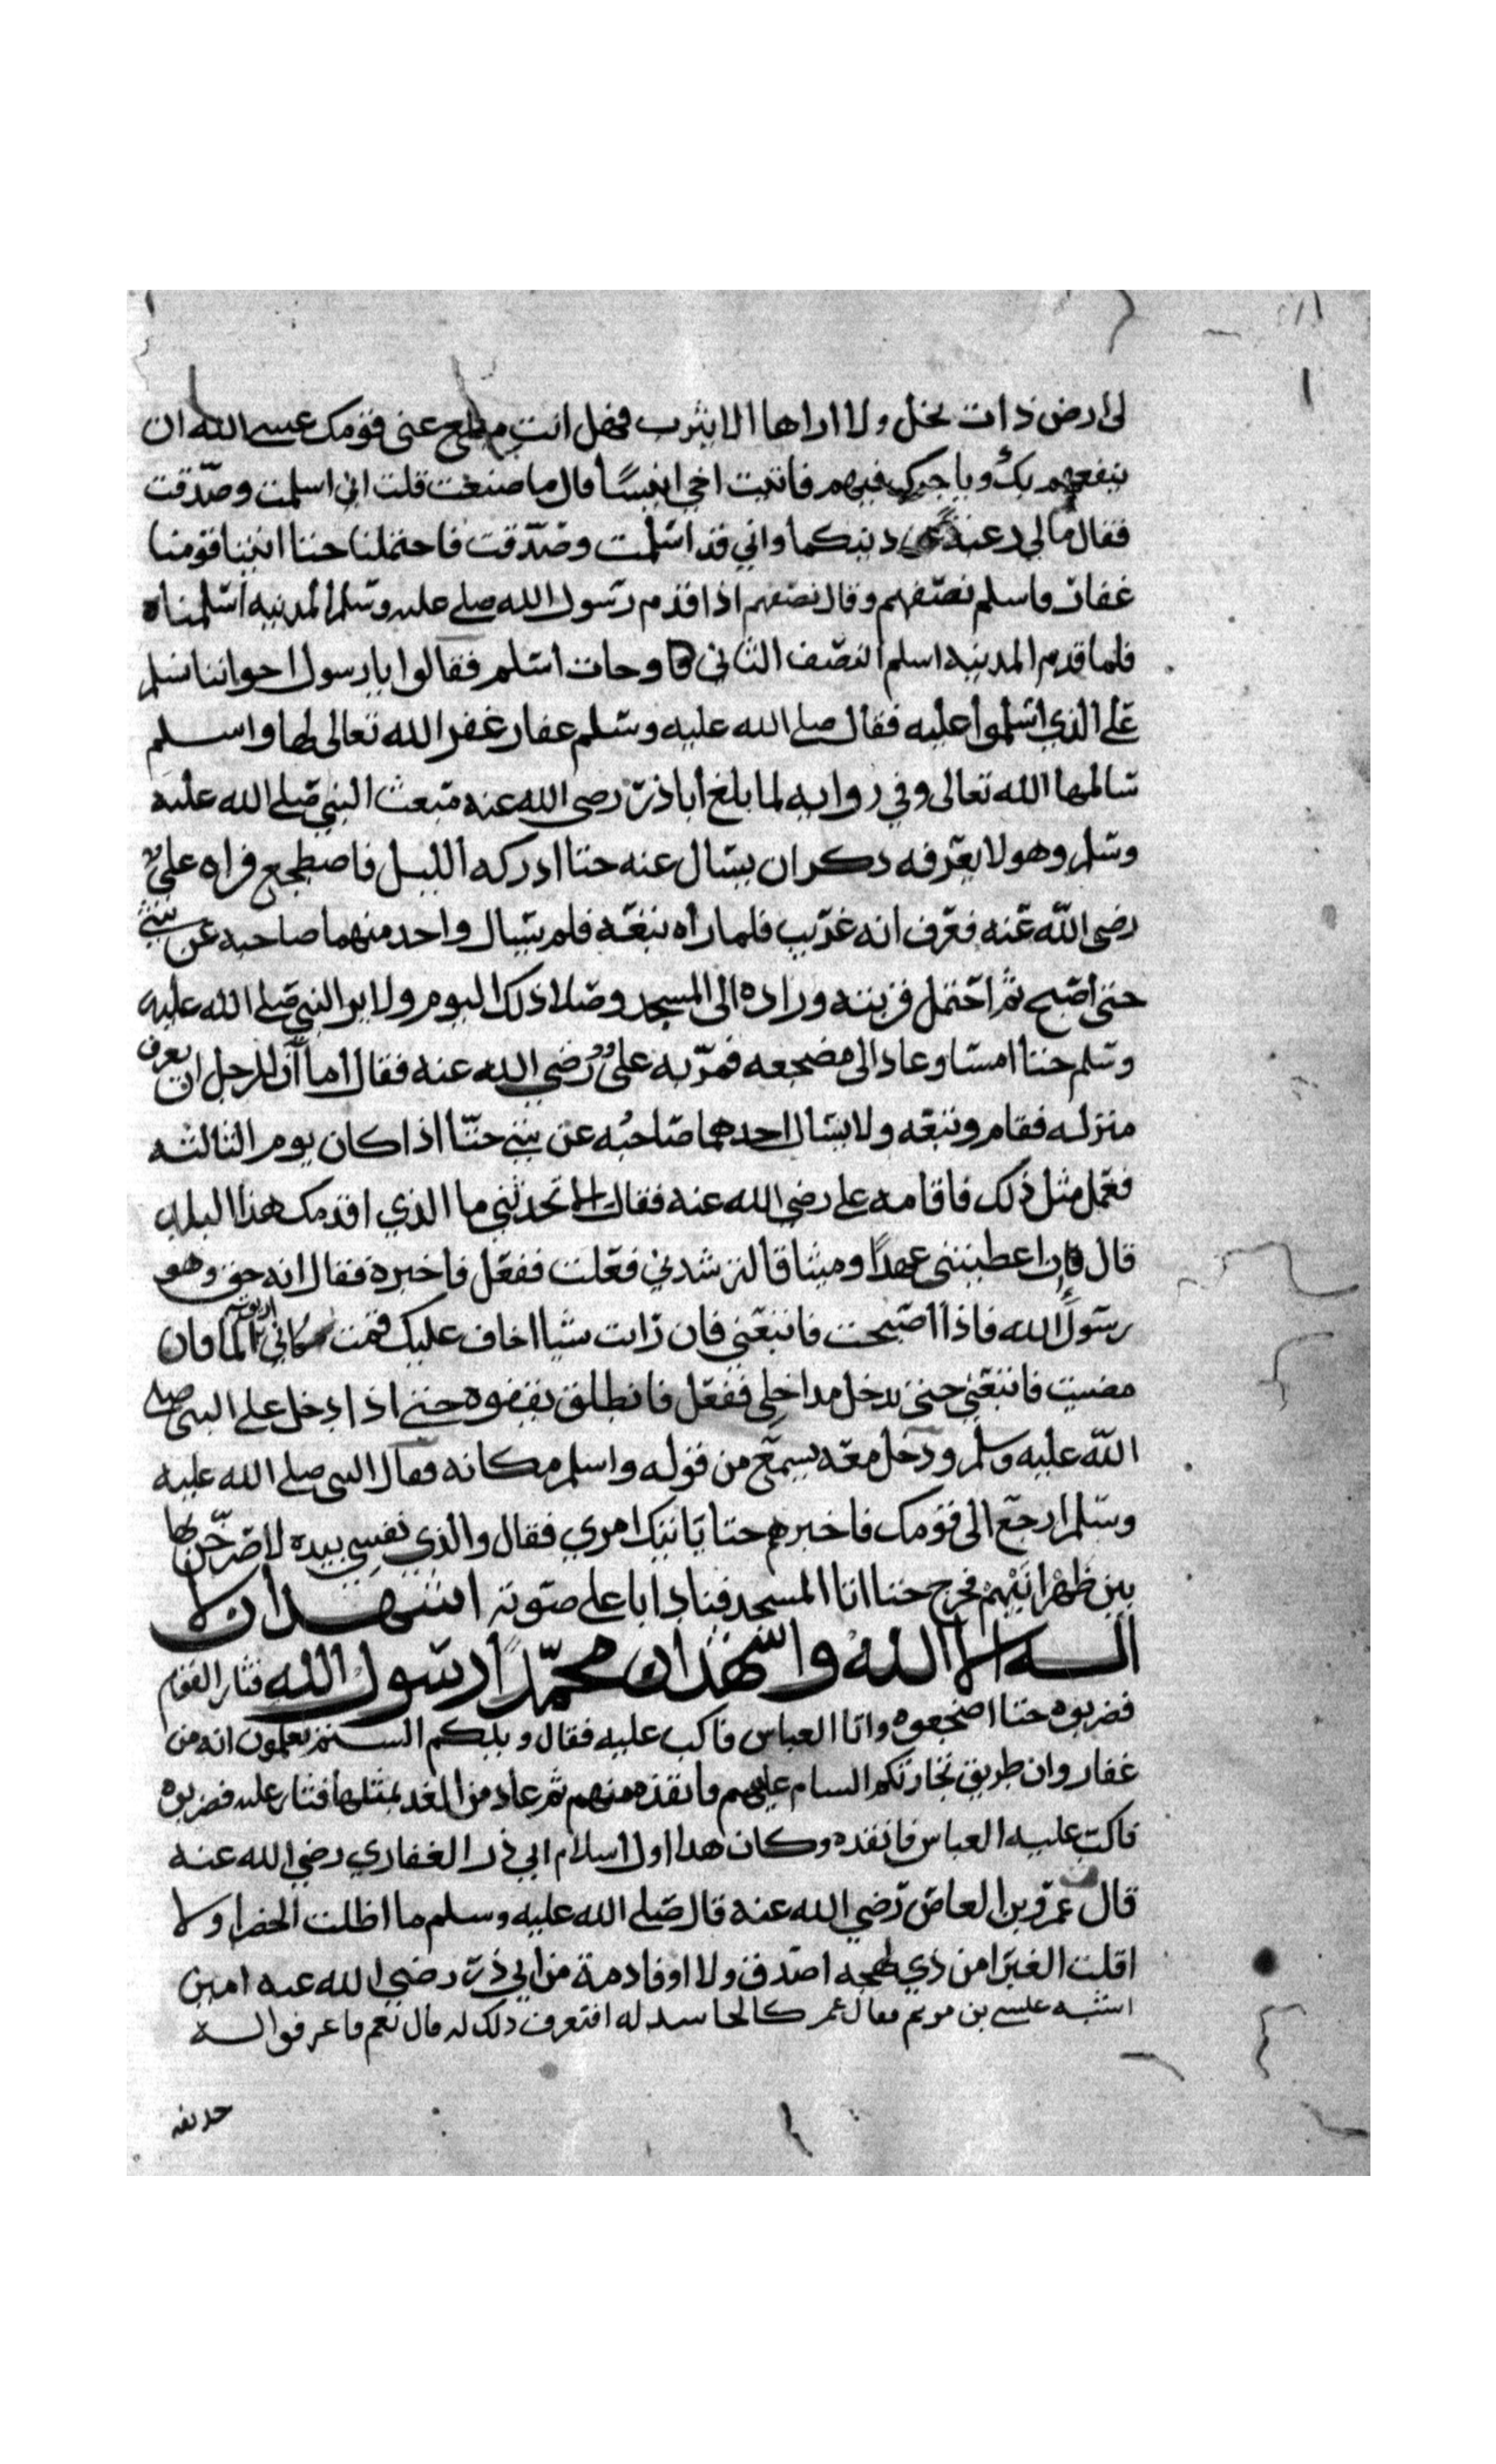 لى ارض ذات نخل ولا اراها الا يثرب فهل انت مبلغ عني قومك عسى الله ان
ينفعهم بك وياجرك فيهم فاتيت اخي انيسًا قال ما صنعت قلت اني اسلمت وصدّقت
فقال مالي رغبة عن دينكما واني قد اسلمت وصدّقت فاحتملنا حتا اتينا قومنا
غفار فاسلم نصفهم وقال نصفهم اذا قدم رسول الله صلى عليه وسلم المدينه اسلمناه
فلما قدم المدينه اسلم النصف الثاني وجات اسلم فقالوا يا رسول اخواننا نسلم
على الذي اسلموا عليه فقال صلى الله عليه وسلم غفار غفر الله تعالى لها واسلم
سالمها الله تعالى وفي روايه لما بلغ ابا ذر رضى الله عنه مبعث النبي صلى الله عليه
وسلم وهو لا يعرفه وكر ان يسال عنه حتا ادركه الليل فاضطجع فراه علي
رضى الله عنه فعرف انه غريب فلما رأه تبعه فلم يسال واحد منهما صاحبه عن شي
حتى اصبح ثم احتمل قربته وزاده الى المسجد وصلا ذلك اليوم ولا ير النبي صلى الله عليه
وسلم حتا امسا وعاد الى مضجعه فمرّ به علي رضي الله عنه فقال اما آن للرجل ان يعرف
منزله فقام وتبعه ولا يسال احدهما صاحبه عن شي حتّا اذا كان يوم الثالثه
فعمل مثل ذلك فاقامه على رضي الله عنه فقال الا تحدثني ما الذي اقدمك هذا البلد
قال ان اعطيتني عهدًا وميثاقا لترشدني فعلت ففعل فاخبره فقال انه حق وهو
رسول الله فاذا اصبحت فاتبعني فان رايت شيا اخاف عليك قمت كاني اريق الما فان
مضيت فاتبعني حتى تدخل مداخلي ففعل فانطلق يقفوه حتى اذا دخل على النبى صلى
الله عليه وسلم ودخل معه يسمع من قوله واسلم مكانه فقال النبى صلى الله عليه
وسلم ارجع الى قومك فاخبرهم حتا ياتيك امري فقال والذي نفسي بيده لاصرخن بها
بين ظهرانيهم فخرج حتا اتا المسجد فنادا باعلى صوته اشهد ان لا
اله الا الله واشهد ان محمّدًا رسول الله فثار القوم
فضربوه حتا اضجعوه واتا العباس فاكب عليه فقال ويلكم الستم تعلمون انه من
غفار وان طريق تجارتكم السام عليهم فانقذه منهم ثم عاد من الغد بمثلها فثار عليه فضربوه
فاكب عليه العباس فانقذه وكان هدا اول اسلام ابي ذر الغفاري رضي الله عنه
قال عمرو بن العاص رضي الله عنه قال صلى الله عليه وسلم ما اظلت الخضرا ولا
اقلت الغبرا من ذي لهجه اصدق ولا اوفا ذمة من ابي ذر رضي الله عنه امين
اشبه عليسى بن مريم فقال عمر كالحاسد له افتعرف ذلك له قال نعم فاعرفوا له
حديفه